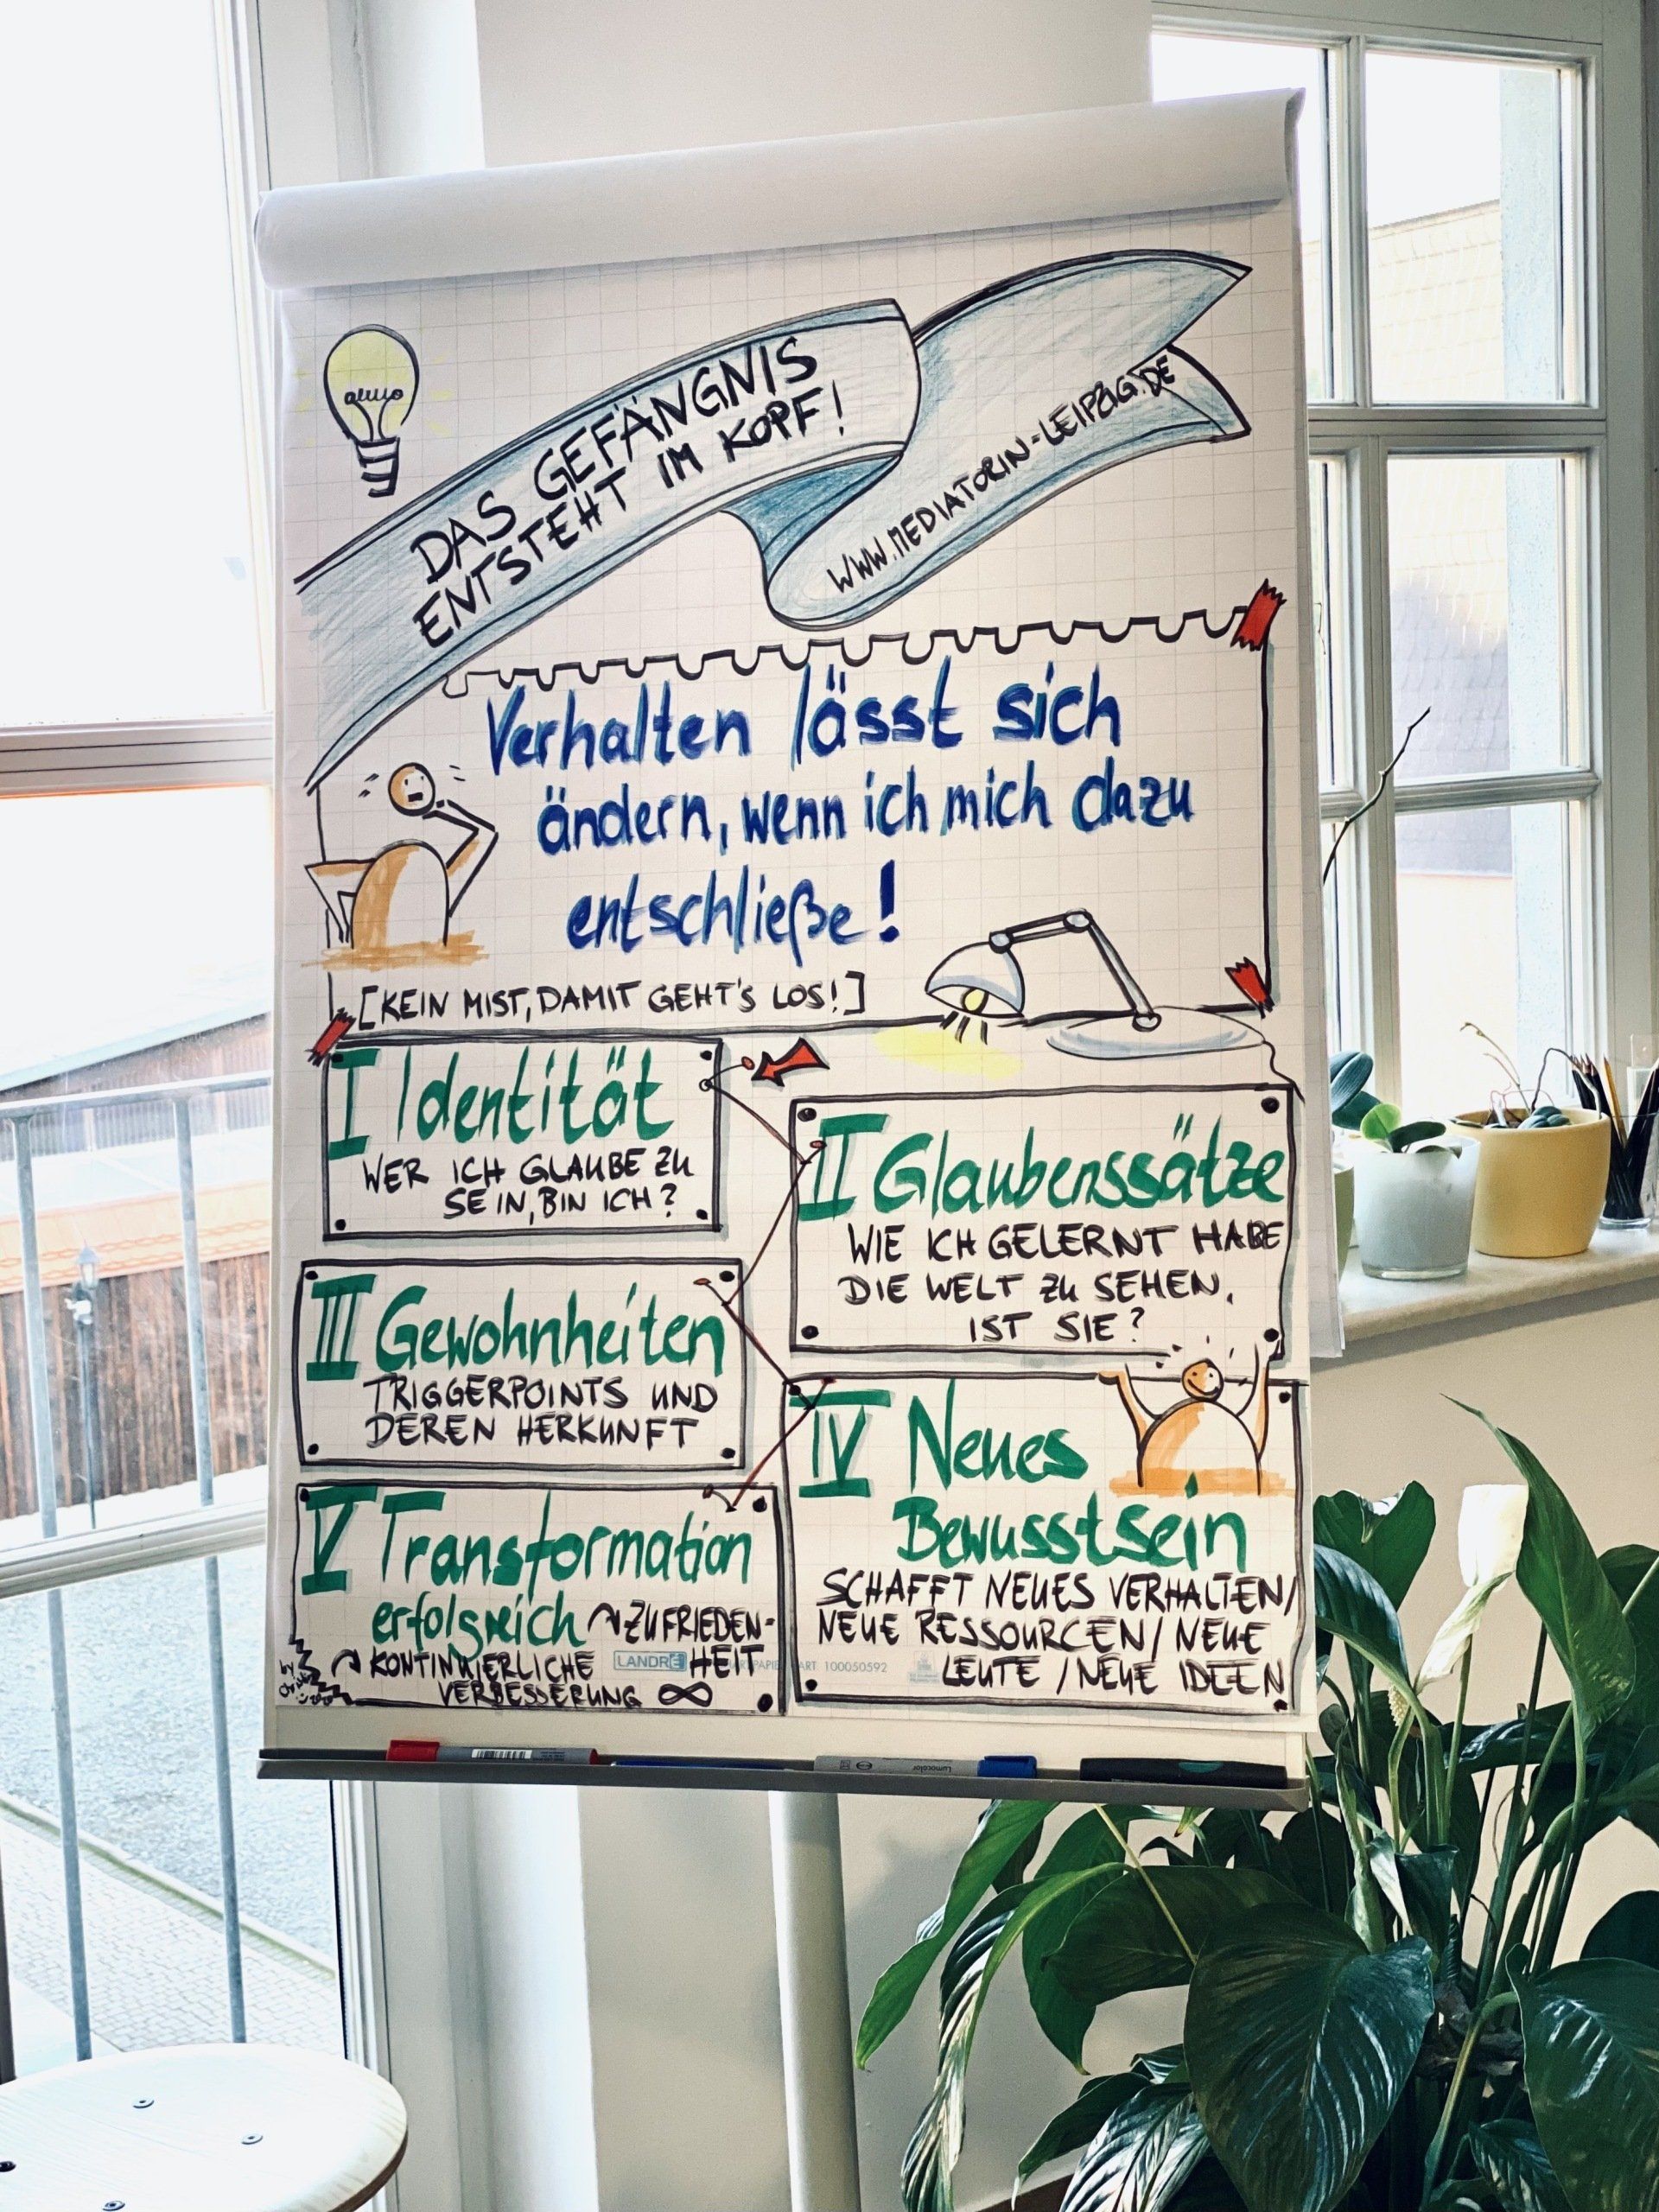 DAS GEFÄNGNIS
ENTSTEHT IM KOPF!
WWW.MEDIATORIN-LEIPZIG.DE
Verhalten lässt sich
ändern, wenn ich mich dazu
entschließe!
[KEIN MIST, DAMIT GEHT'S LOS!]
I Identität
WER ICH GLAUBE ZU
SEIN, BIN ICH?
II Glaubenssätze
WIE ICH GELERNT HABE
DIE WELT ZU SEHEN,
IST SIE?
III Gewohnheiten
TRIGGERPOINTS UND
DEREN HERKUNFT
IV Neues
Bewusstsein
SCHAFFT NEUES VERHALTEN/
NEUE RESSOURCEN/ NEUE
LEUTE / NEUE IDEEN
V Transformation
erfolgreich ZUFRIEDEN-
HEIT
KONTINUIERLICHE
VERBESSERUNG ∞
by
LANDRÉ
ART 100050592
Lumocolor